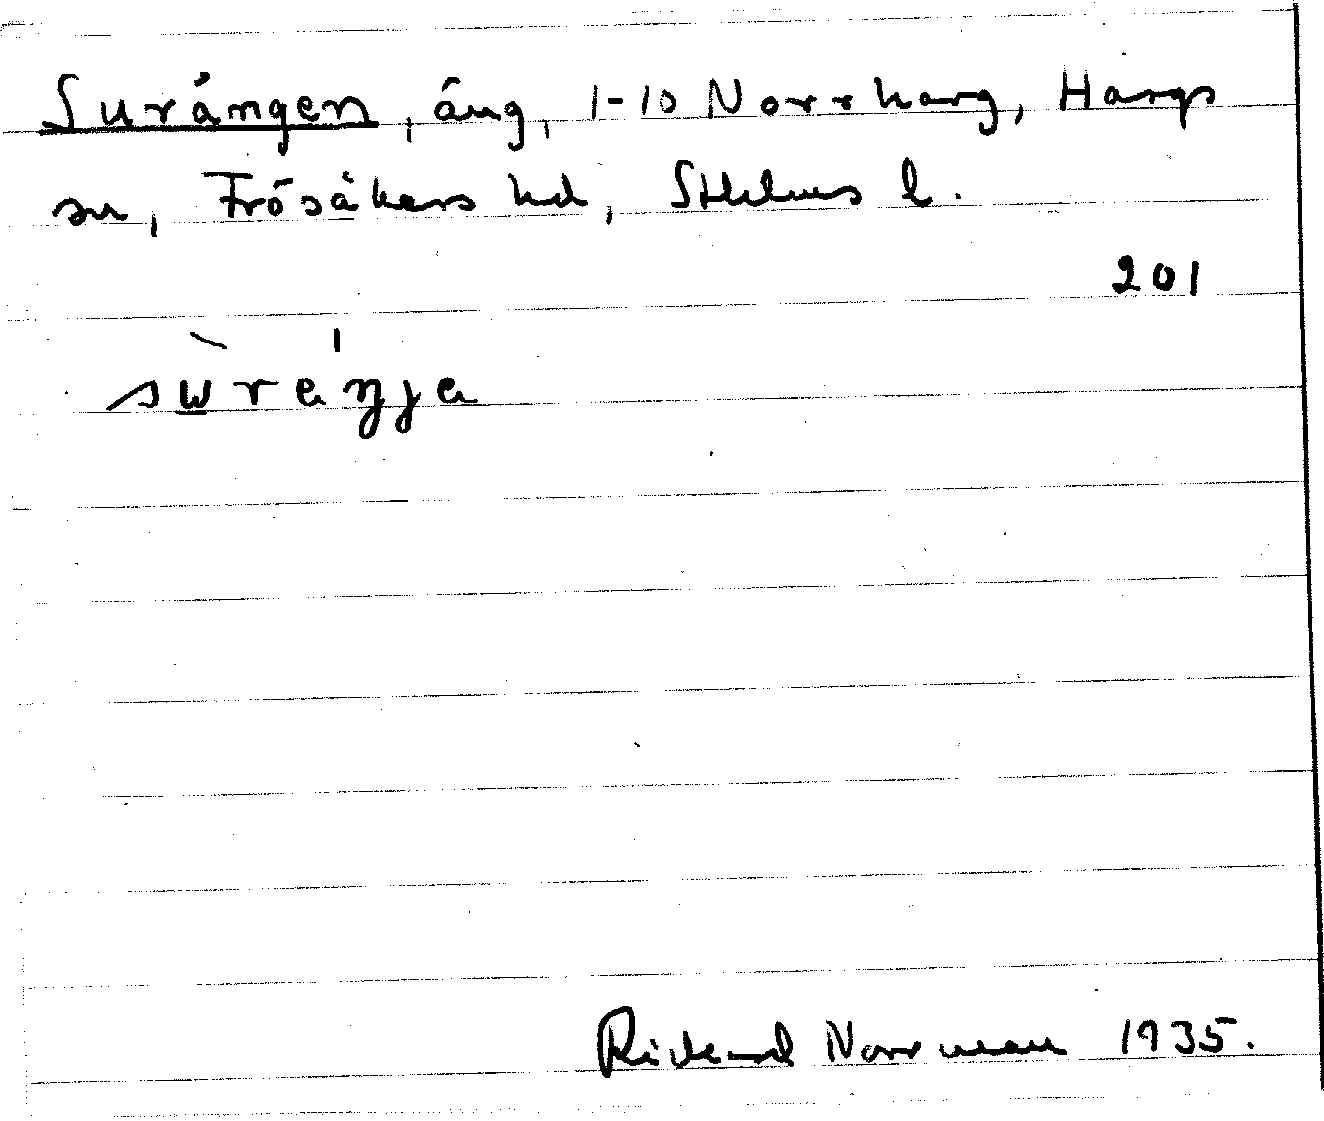 Surängen, äng, 1-10 Norrharg, Hargs
sn, Frösåkers hd, Sthlms l.
201
sùrèŋja
Rickard Norrman 1935.